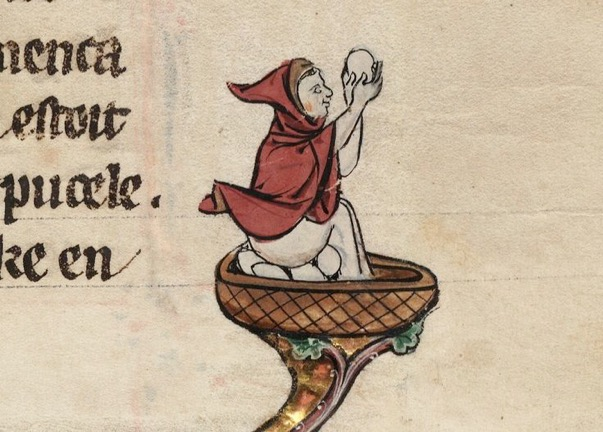 menca
estoit
pucele.
ke en